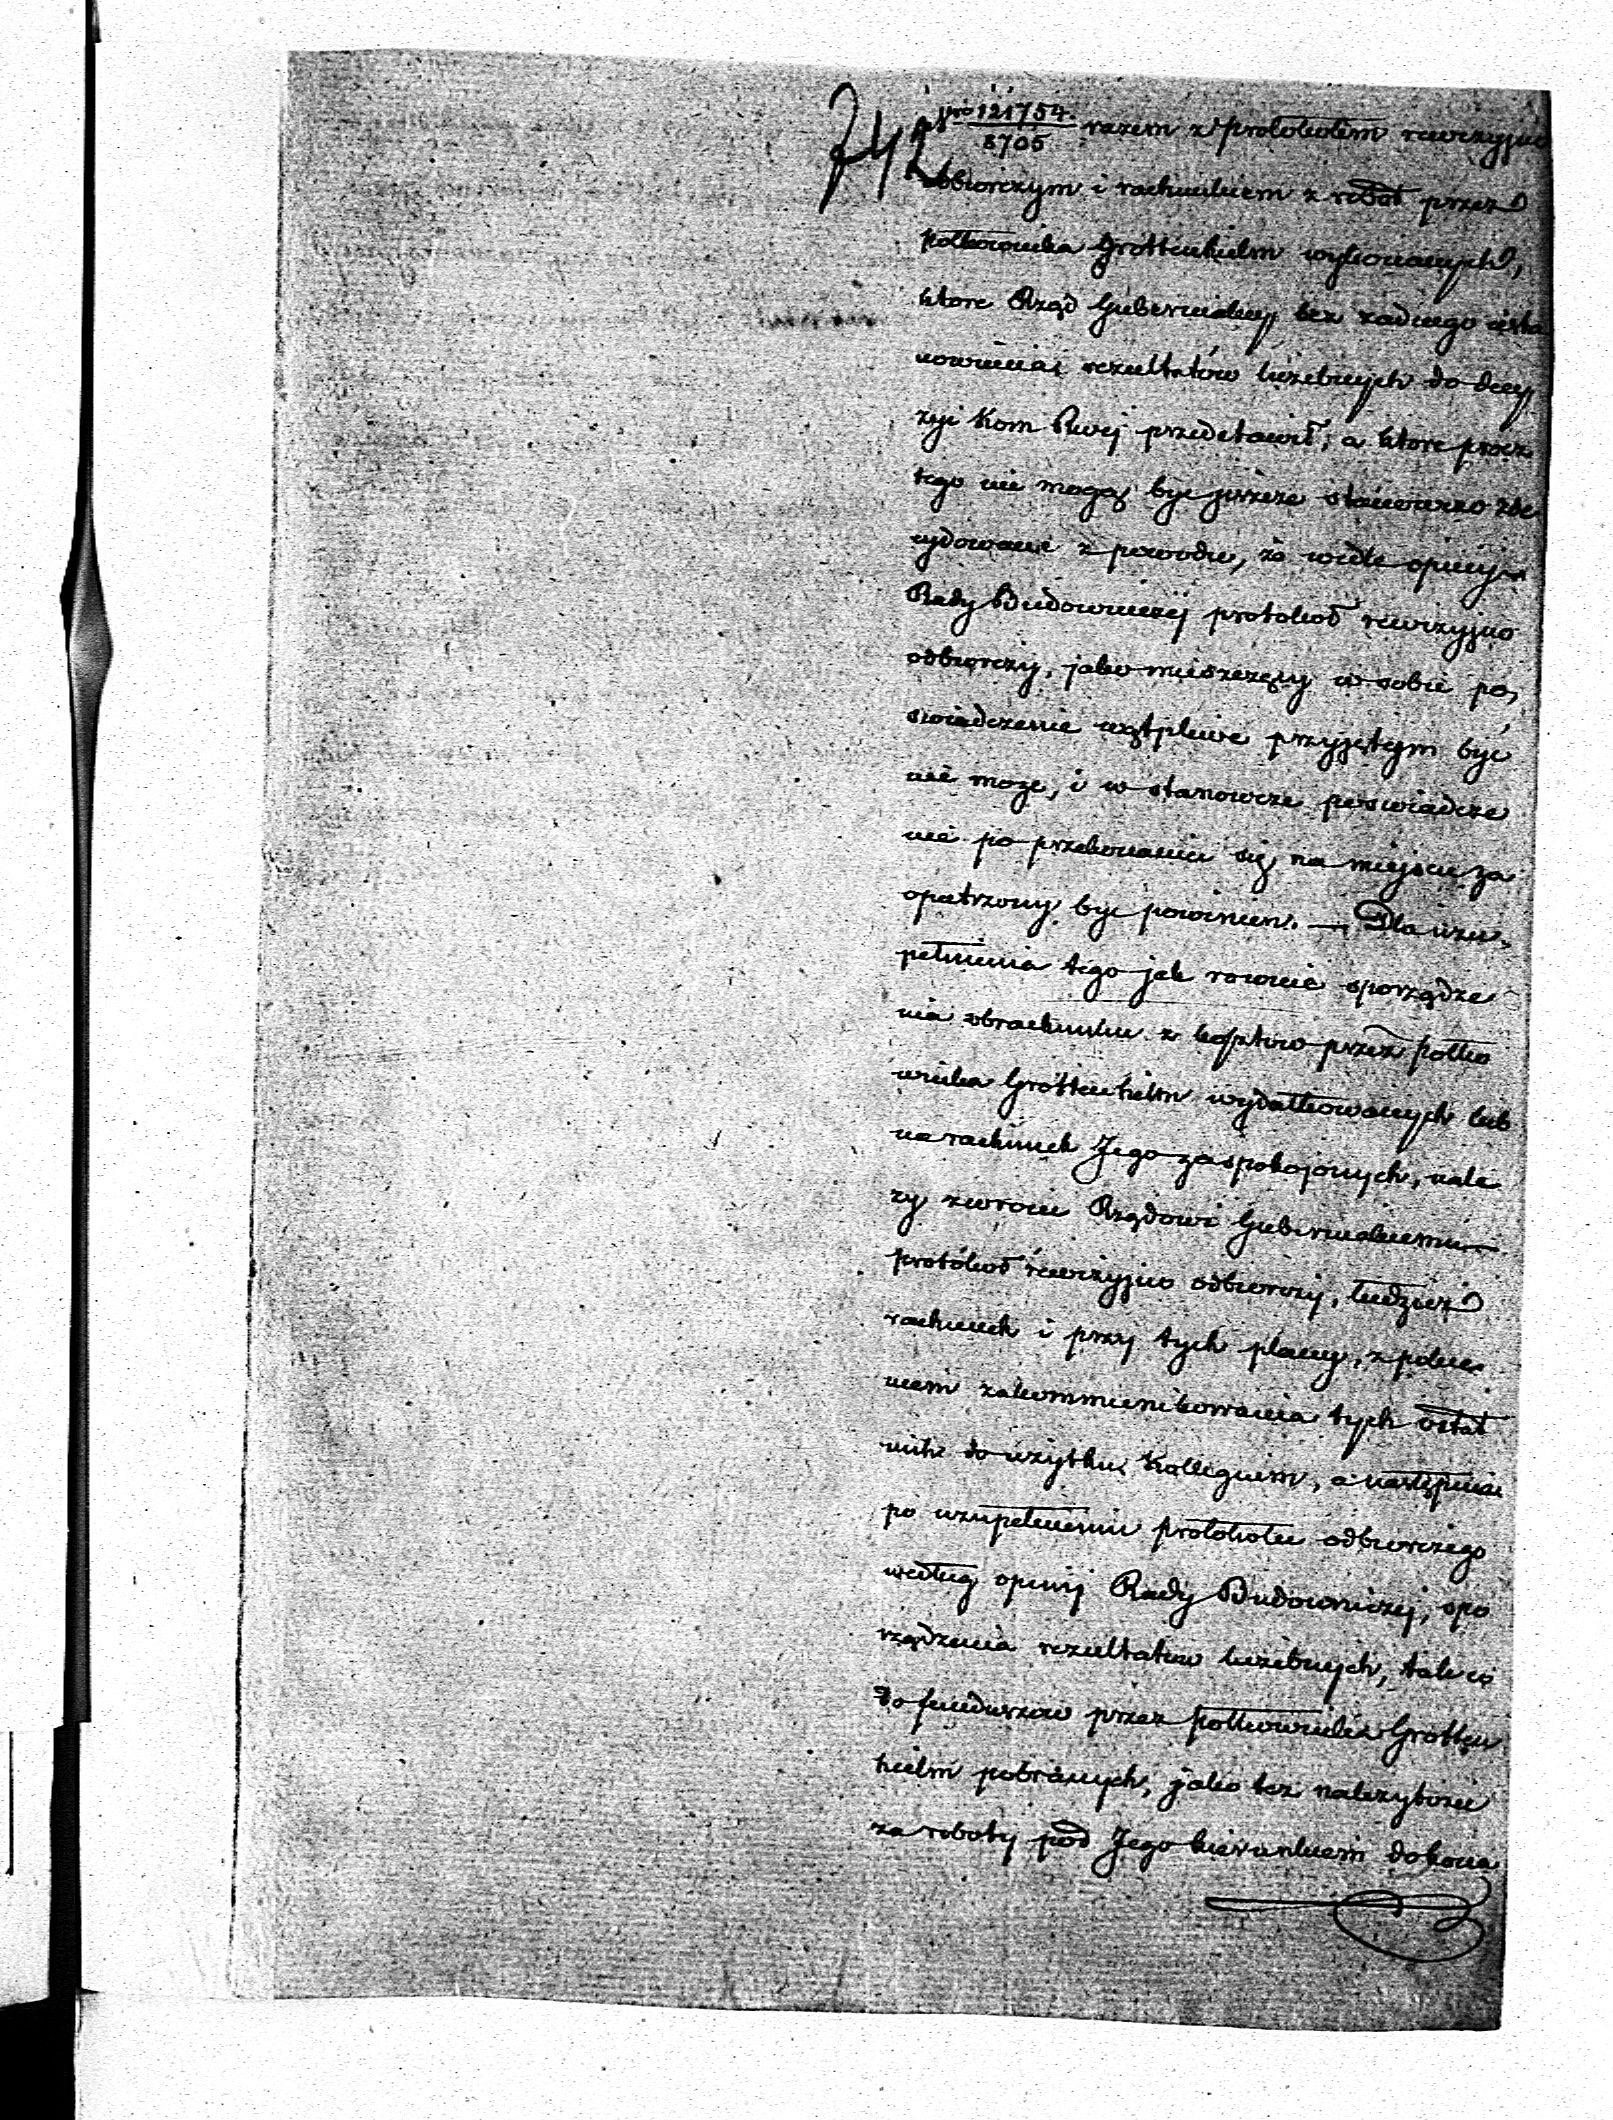 742
pro 121754/8705 razem z protokołem rewizyjno
odbiorczym i rachunkiem z robót przez
Półkownika Grottenhielm wykonanych,
ktore Rząd Gubernialny bez zadnego usta
nowienia rezultatów liczebnych do decy
zyi Kom Rwej przedstawił, a ktore procz
tego nie mogą byc jeszcze stanowczo zde
cydowane z powodu, że wedle opinij
Rady Budowniczej protokoł rewizyjno
odbiorczy, jako mieszczący w sobie po,
swiadczenie wątpliwe przyjętym być
nie moze, i w stanowcze poswiadcze
nie po przekonaniu się na miejscu za
opatrzony byc powinien. — Dla uzu,
pełnienia tego jak rownie sporządze
nia obrachunku z kosztow przez Połko
wnika Grottenhielm wydatkowanych lub
na rachunek Jego zaspokojonych, nale
zy zwrocic Rządowi Gubernialnemu
protókoł rewizyjno odbiorczy, tudzież
rachunek i przy tych plany, z polece
niem zakommunikowania tych ostat
nich do użytku Kollegium, a następnie
po uzupełnieniu protokołu odbiorczego
według opinij Rady Budowniczej, spo
rządzenia rezultatow liczebnych, tak co
do funduszow przez Połkownika Grotten
hielm pobranych, jako tez nalezytosci
za roboty pod Jego kierunkiem dokona